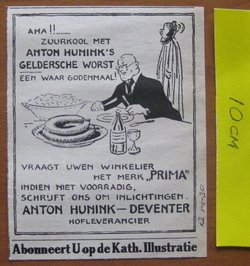 AHA!!......
ZUURKOOL MET
ANTON HUNINK'S
GELDERSCHE WORST
EEN WAAR GODENMAAL!
VRAAGT UWEN WINKELIER
HET MERK „PRIMA"
INDIEN NIET VOORRADIG,
SCHRIJFT ONS OM INLICHTINGEN.
ANTON HUNINK—DEVENTER
HOFLEVERANCIER
Abonneert U op de Kath. Illustratie
10cm